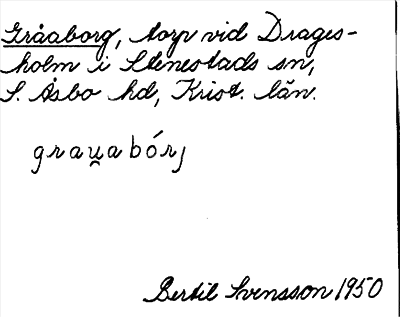 Gråaborg, torp vid Drages-
holm i Stenestads sn,
S. Åsbo hd, Krist. län.
grau̯abórj
Bertil Svensson 1950